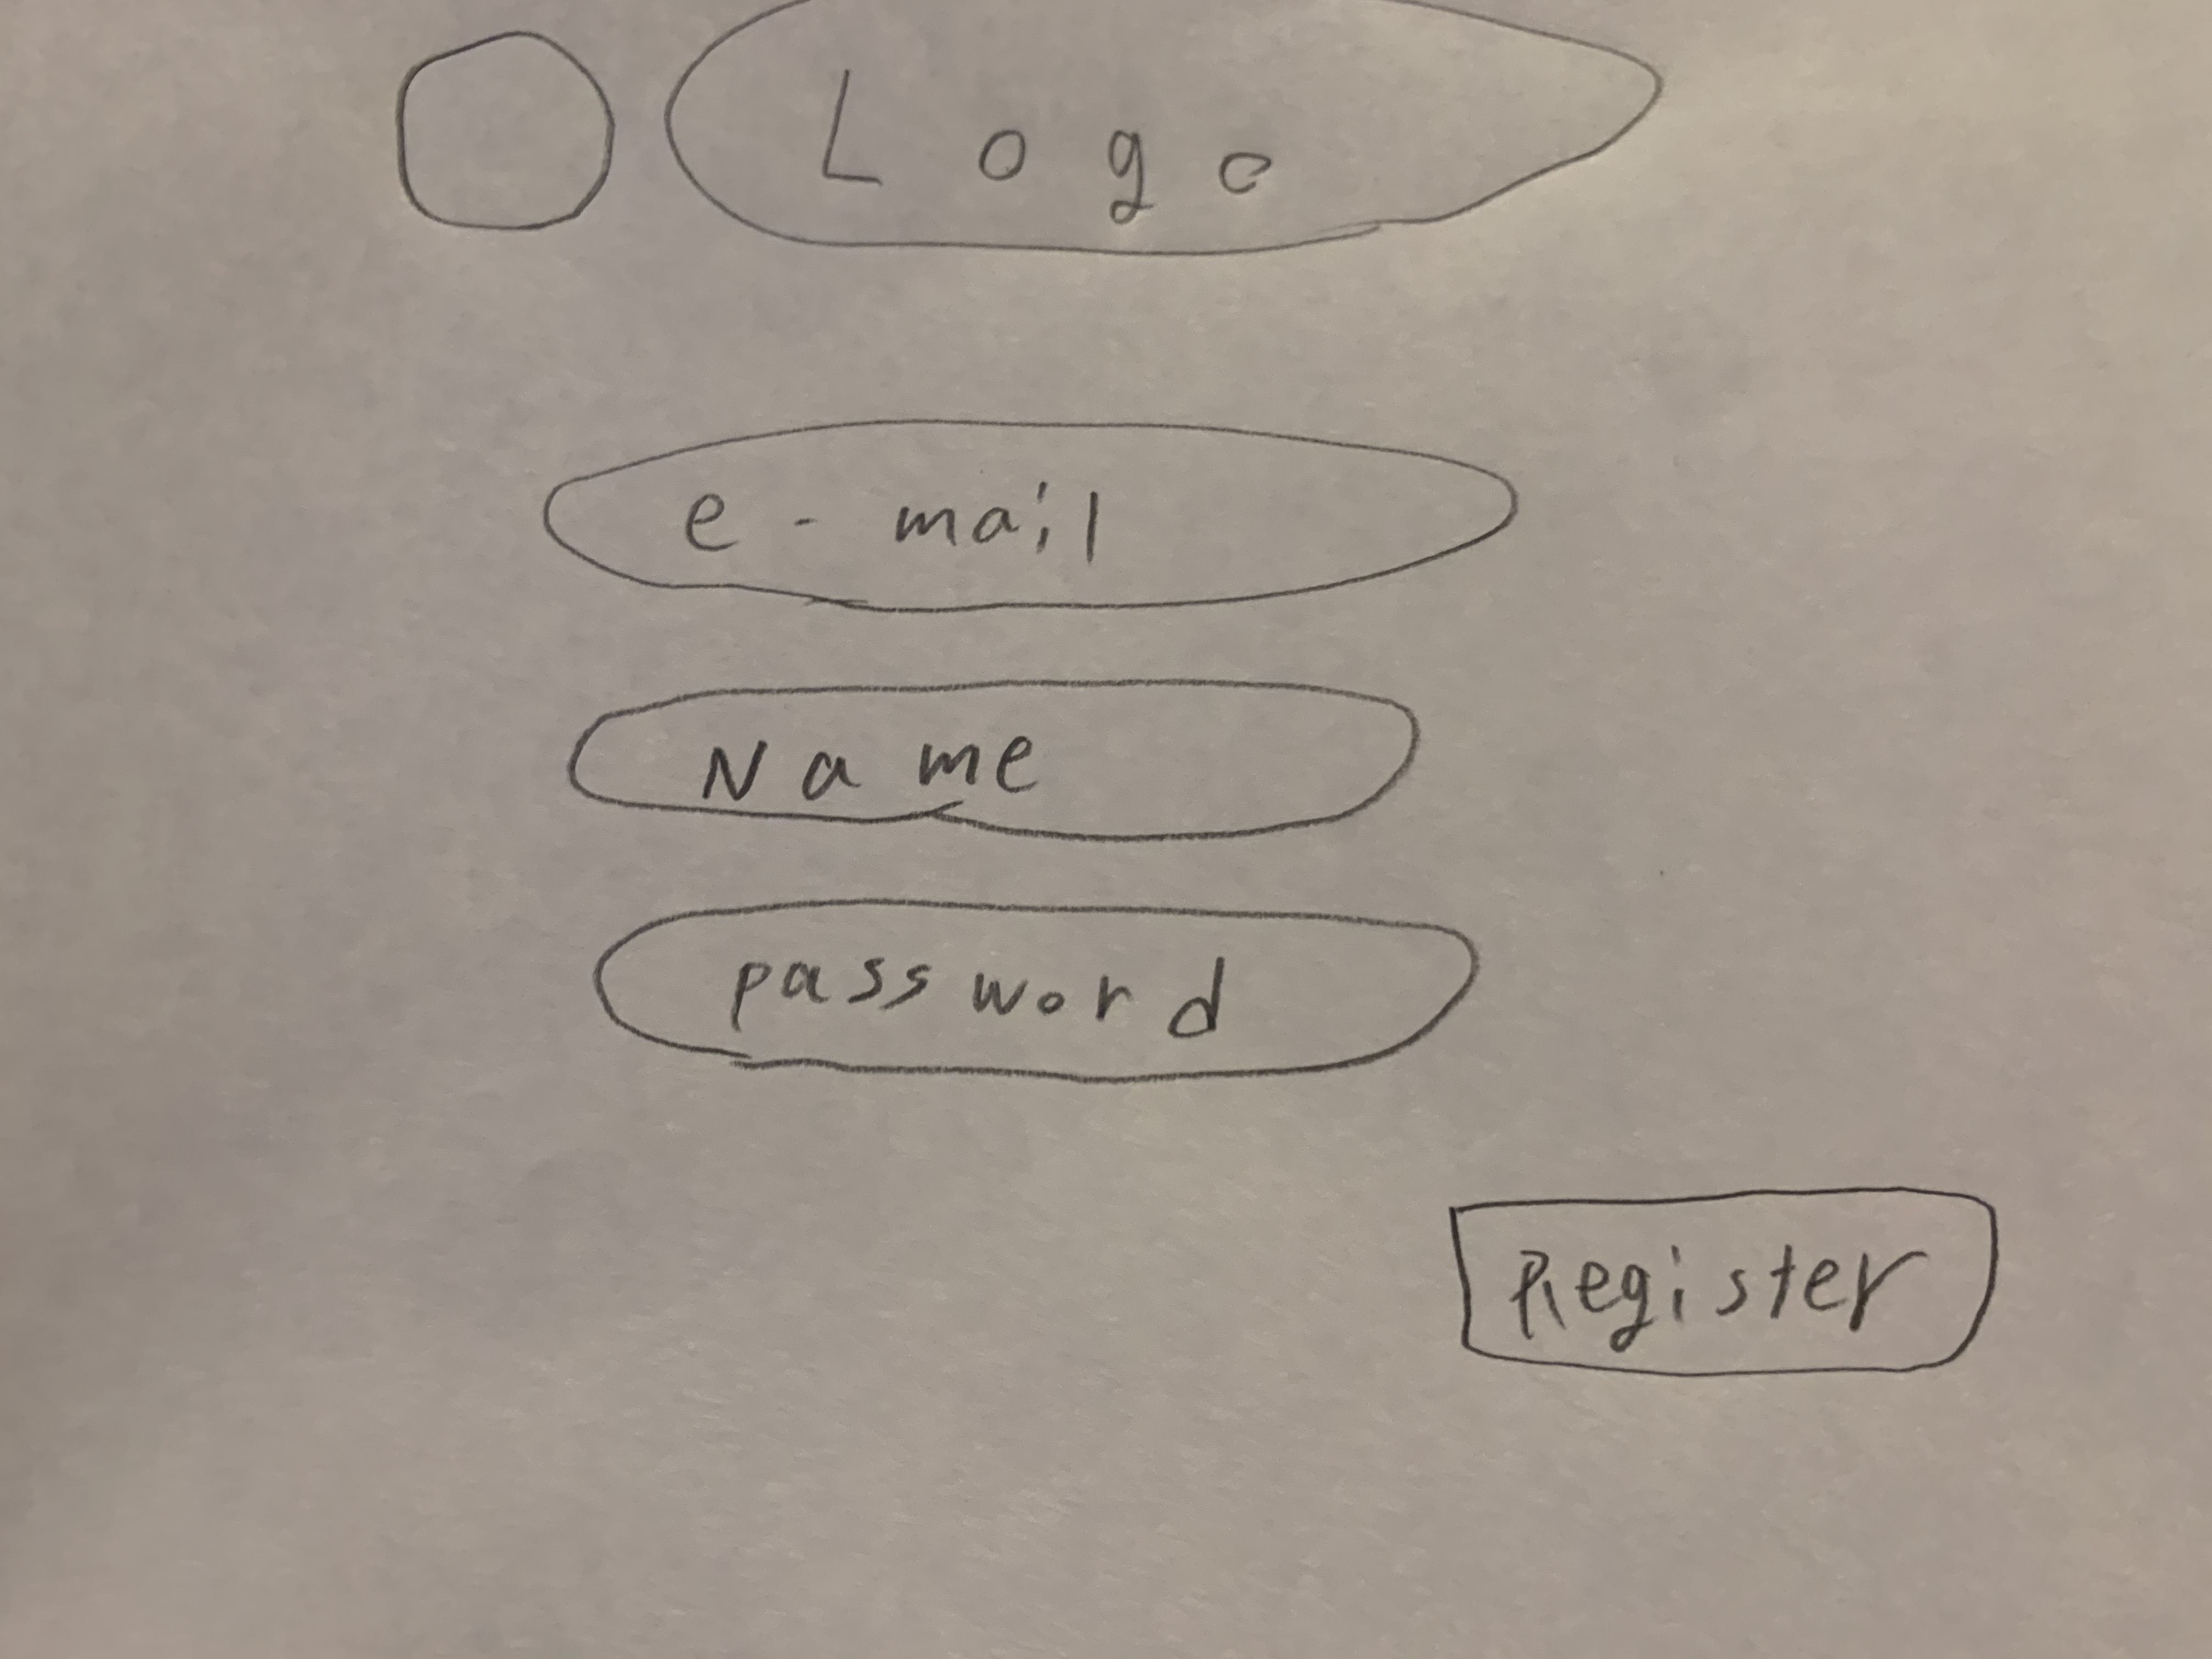 Logo
e-mail
Name
password
Register